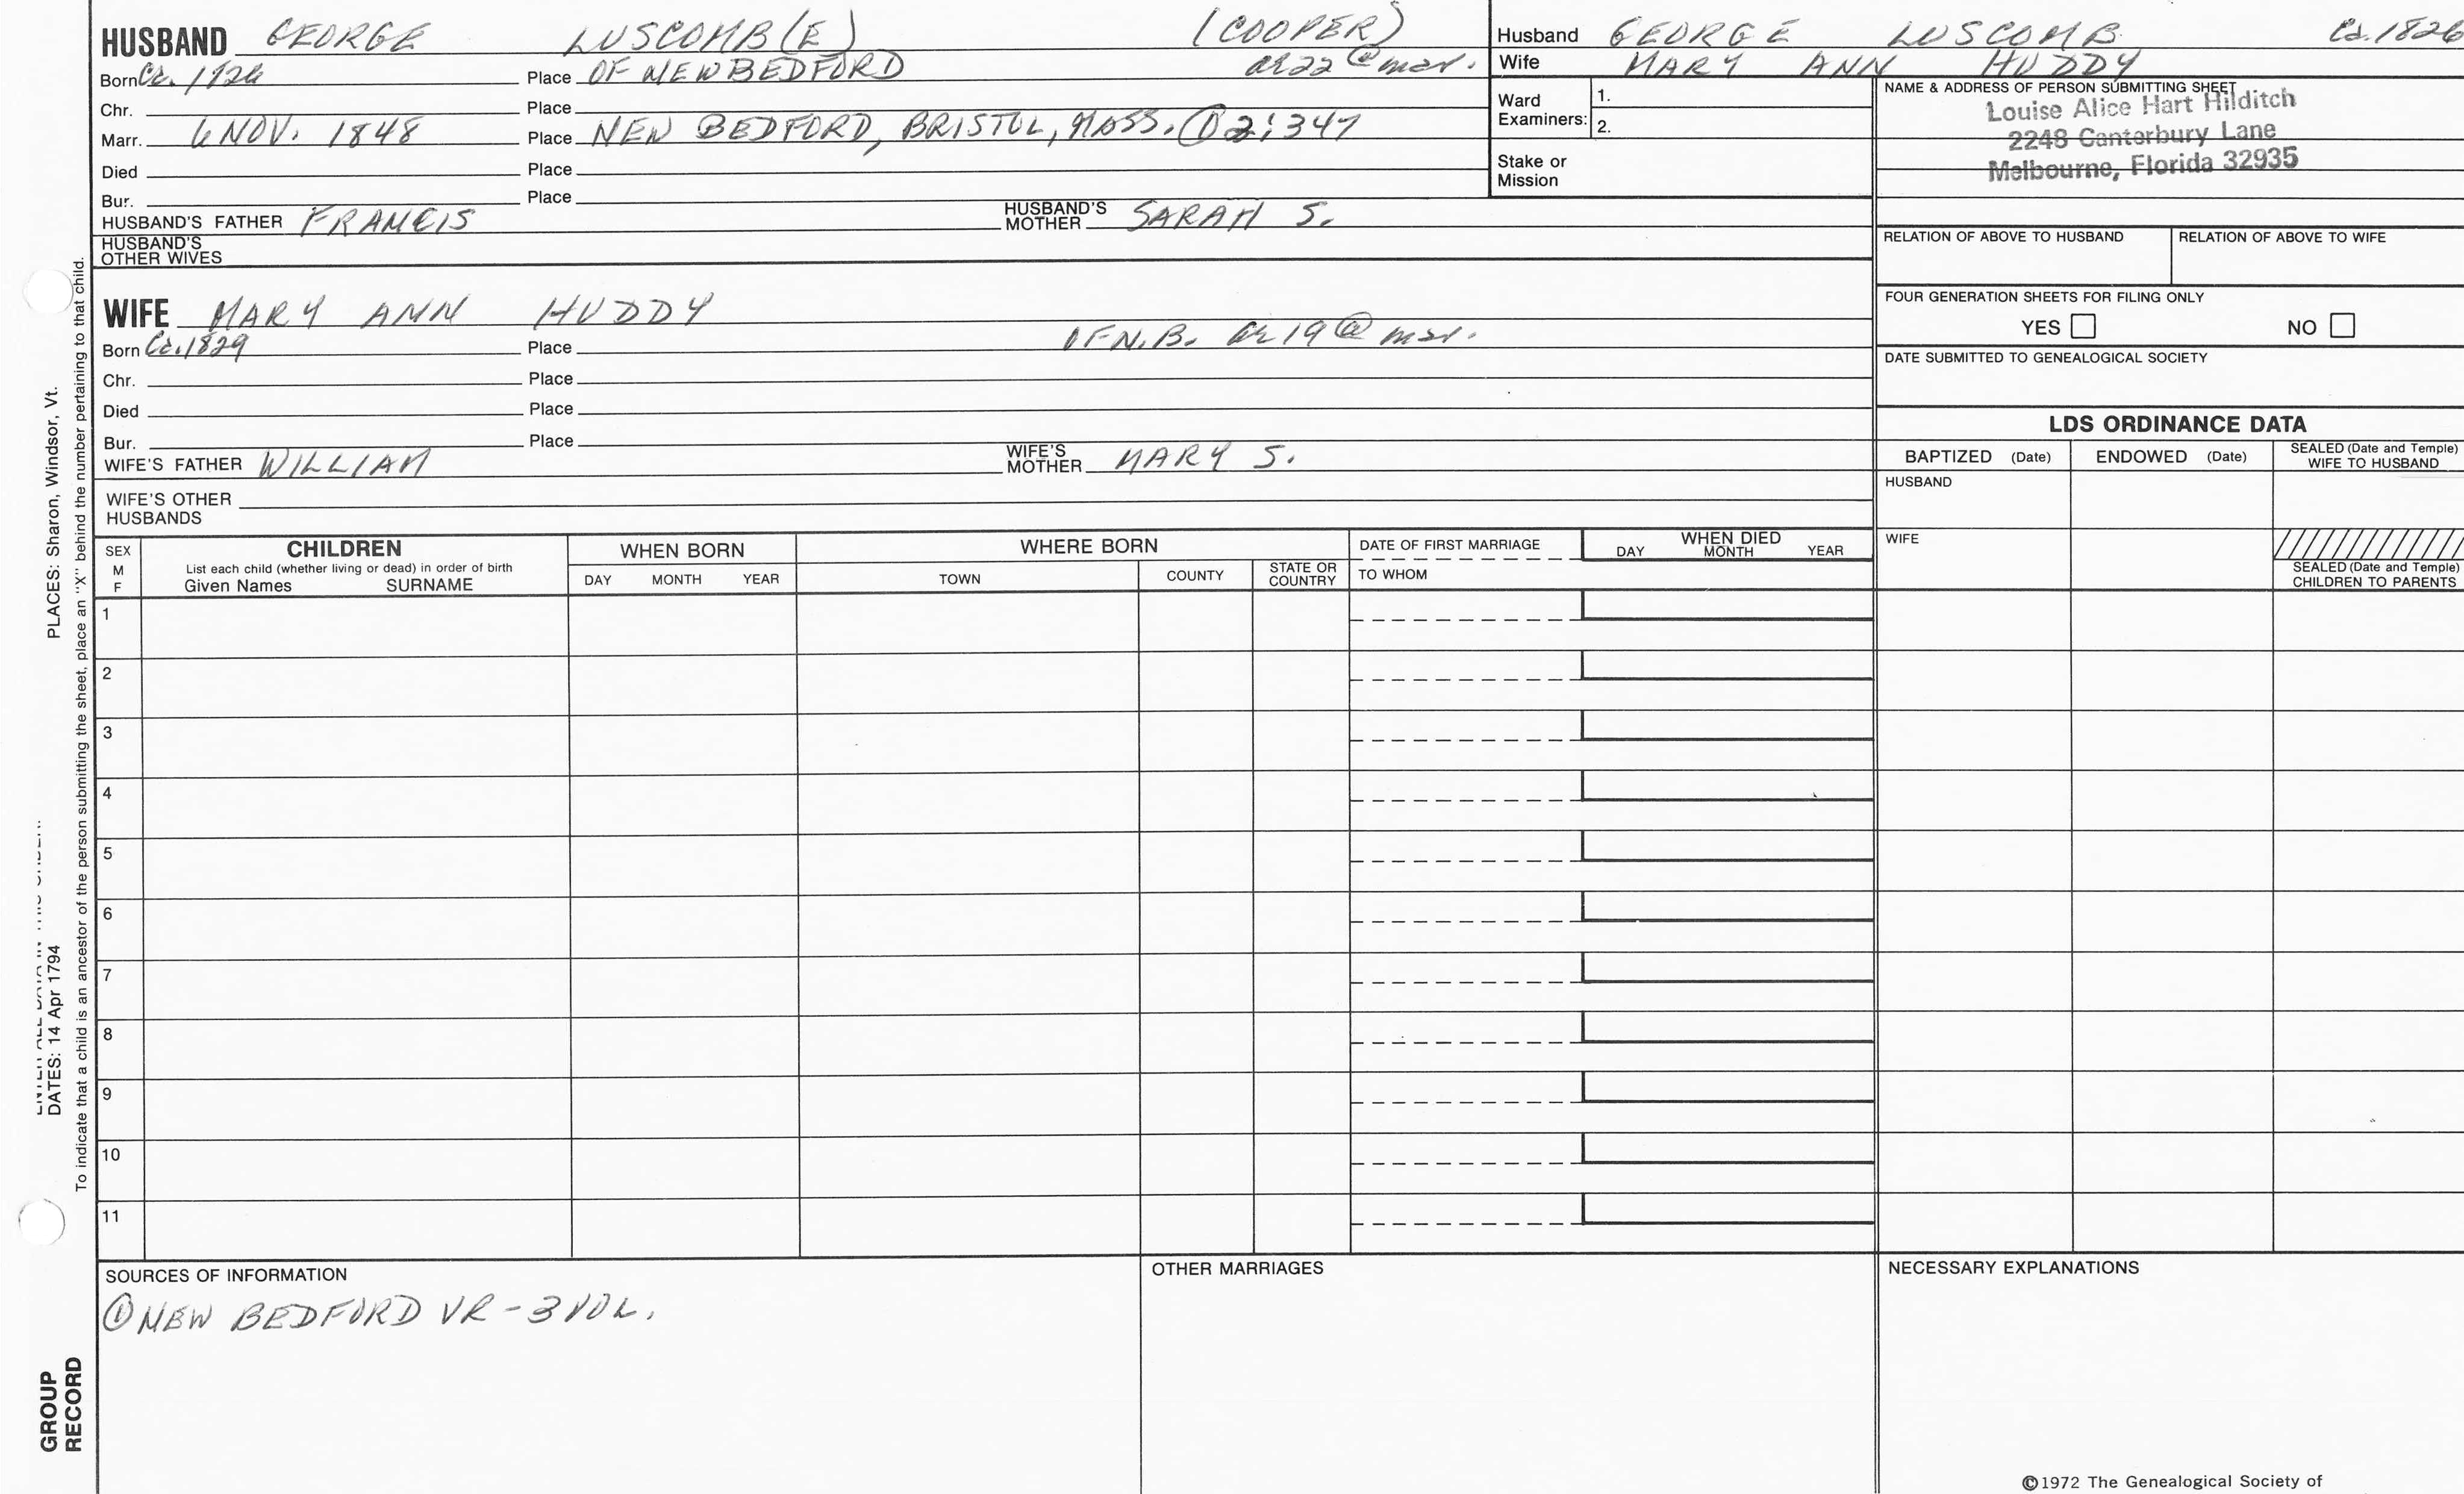 HUSBAND GEORGE LUSCOMB(E) (COOPER)
Born Ca. 1826 Place OF NEW BEDFORD ae 22 @ mar.
Chr. Place
Marr. 6 NOV. 1848 Place NEW BEDFORD, BRISTOL, MASS. ① 2:347
Died Place
Bur. Place
HUSBAND'S FATHER FRANCIS HUSBAND'S MOTHER SARAH S.
HUSBAND'S OTHER WIVES
Husband GEORGE LUSCOMB Ca. 1826
Wife MARY ANN HUDDY
Ward Examiners: 1.
2.
Stake or Mission
NAME & ADDRESS OF PERSON SUBMITTING SHEET
Louise Alice Hart Hilditch
2248 Canterbury Lane
Melbourne, Florida 32935
RELATION OF ABOVE TO HUSBAND RELATION OF ABOVE TO WIFE
FOUR GENERATION SHEETS FOR FILING ONLY
YES NO
DATE SUBMITTED TO GENEALOGICAL SOCIETY
WIFE MARY ANN HUDDY
Born Ca. 1829 Place OF N.B. ae 19 @ mar.
Chr. Place
Died Place
Bur. Place
WIFE'S FATHER WILLIAM WIFE'S MOTHER MARY S.
WIFE'S OTHER HUSBANDS
LDS ORDINANCE DATA
BAPTIZED (Date) ENDOWED (Date) SEALED (Date and Temple) WIFE TO HUSBAND
HUSBAND
WIFE
SEALED (Date and Temple) CHILDREN TO PARENTS
SEX M F
CHILDREN
List each child (whether living or dead) in order of birth
Given Names SURNAME
WHEN BORN
DAY MONTH YEAR
WHERE BORN
TOWN COUNTY STATE OR COUNTRY
DATE OF FIRST MARRIAGE
TO WHOM
WHEN DIED
DAY MONTH YEAR
1
2
3
4
5
6
7
8
9
10
11
SOURCES OF INFORMATION
① NEW BEDFORD VR - 3 VOL.
OTHER MARRIAGES
NECESSARY EXPLANATIONS
©1972 The Genealogical Society of
DATES: 14 Apr 1794 PLACES: Sharon, Windsor, Vt.
To indicate that a child is an ancestor of the person submitting the sheet, place an "X" behind the number pertaining to that child.
GROUP
RECORD